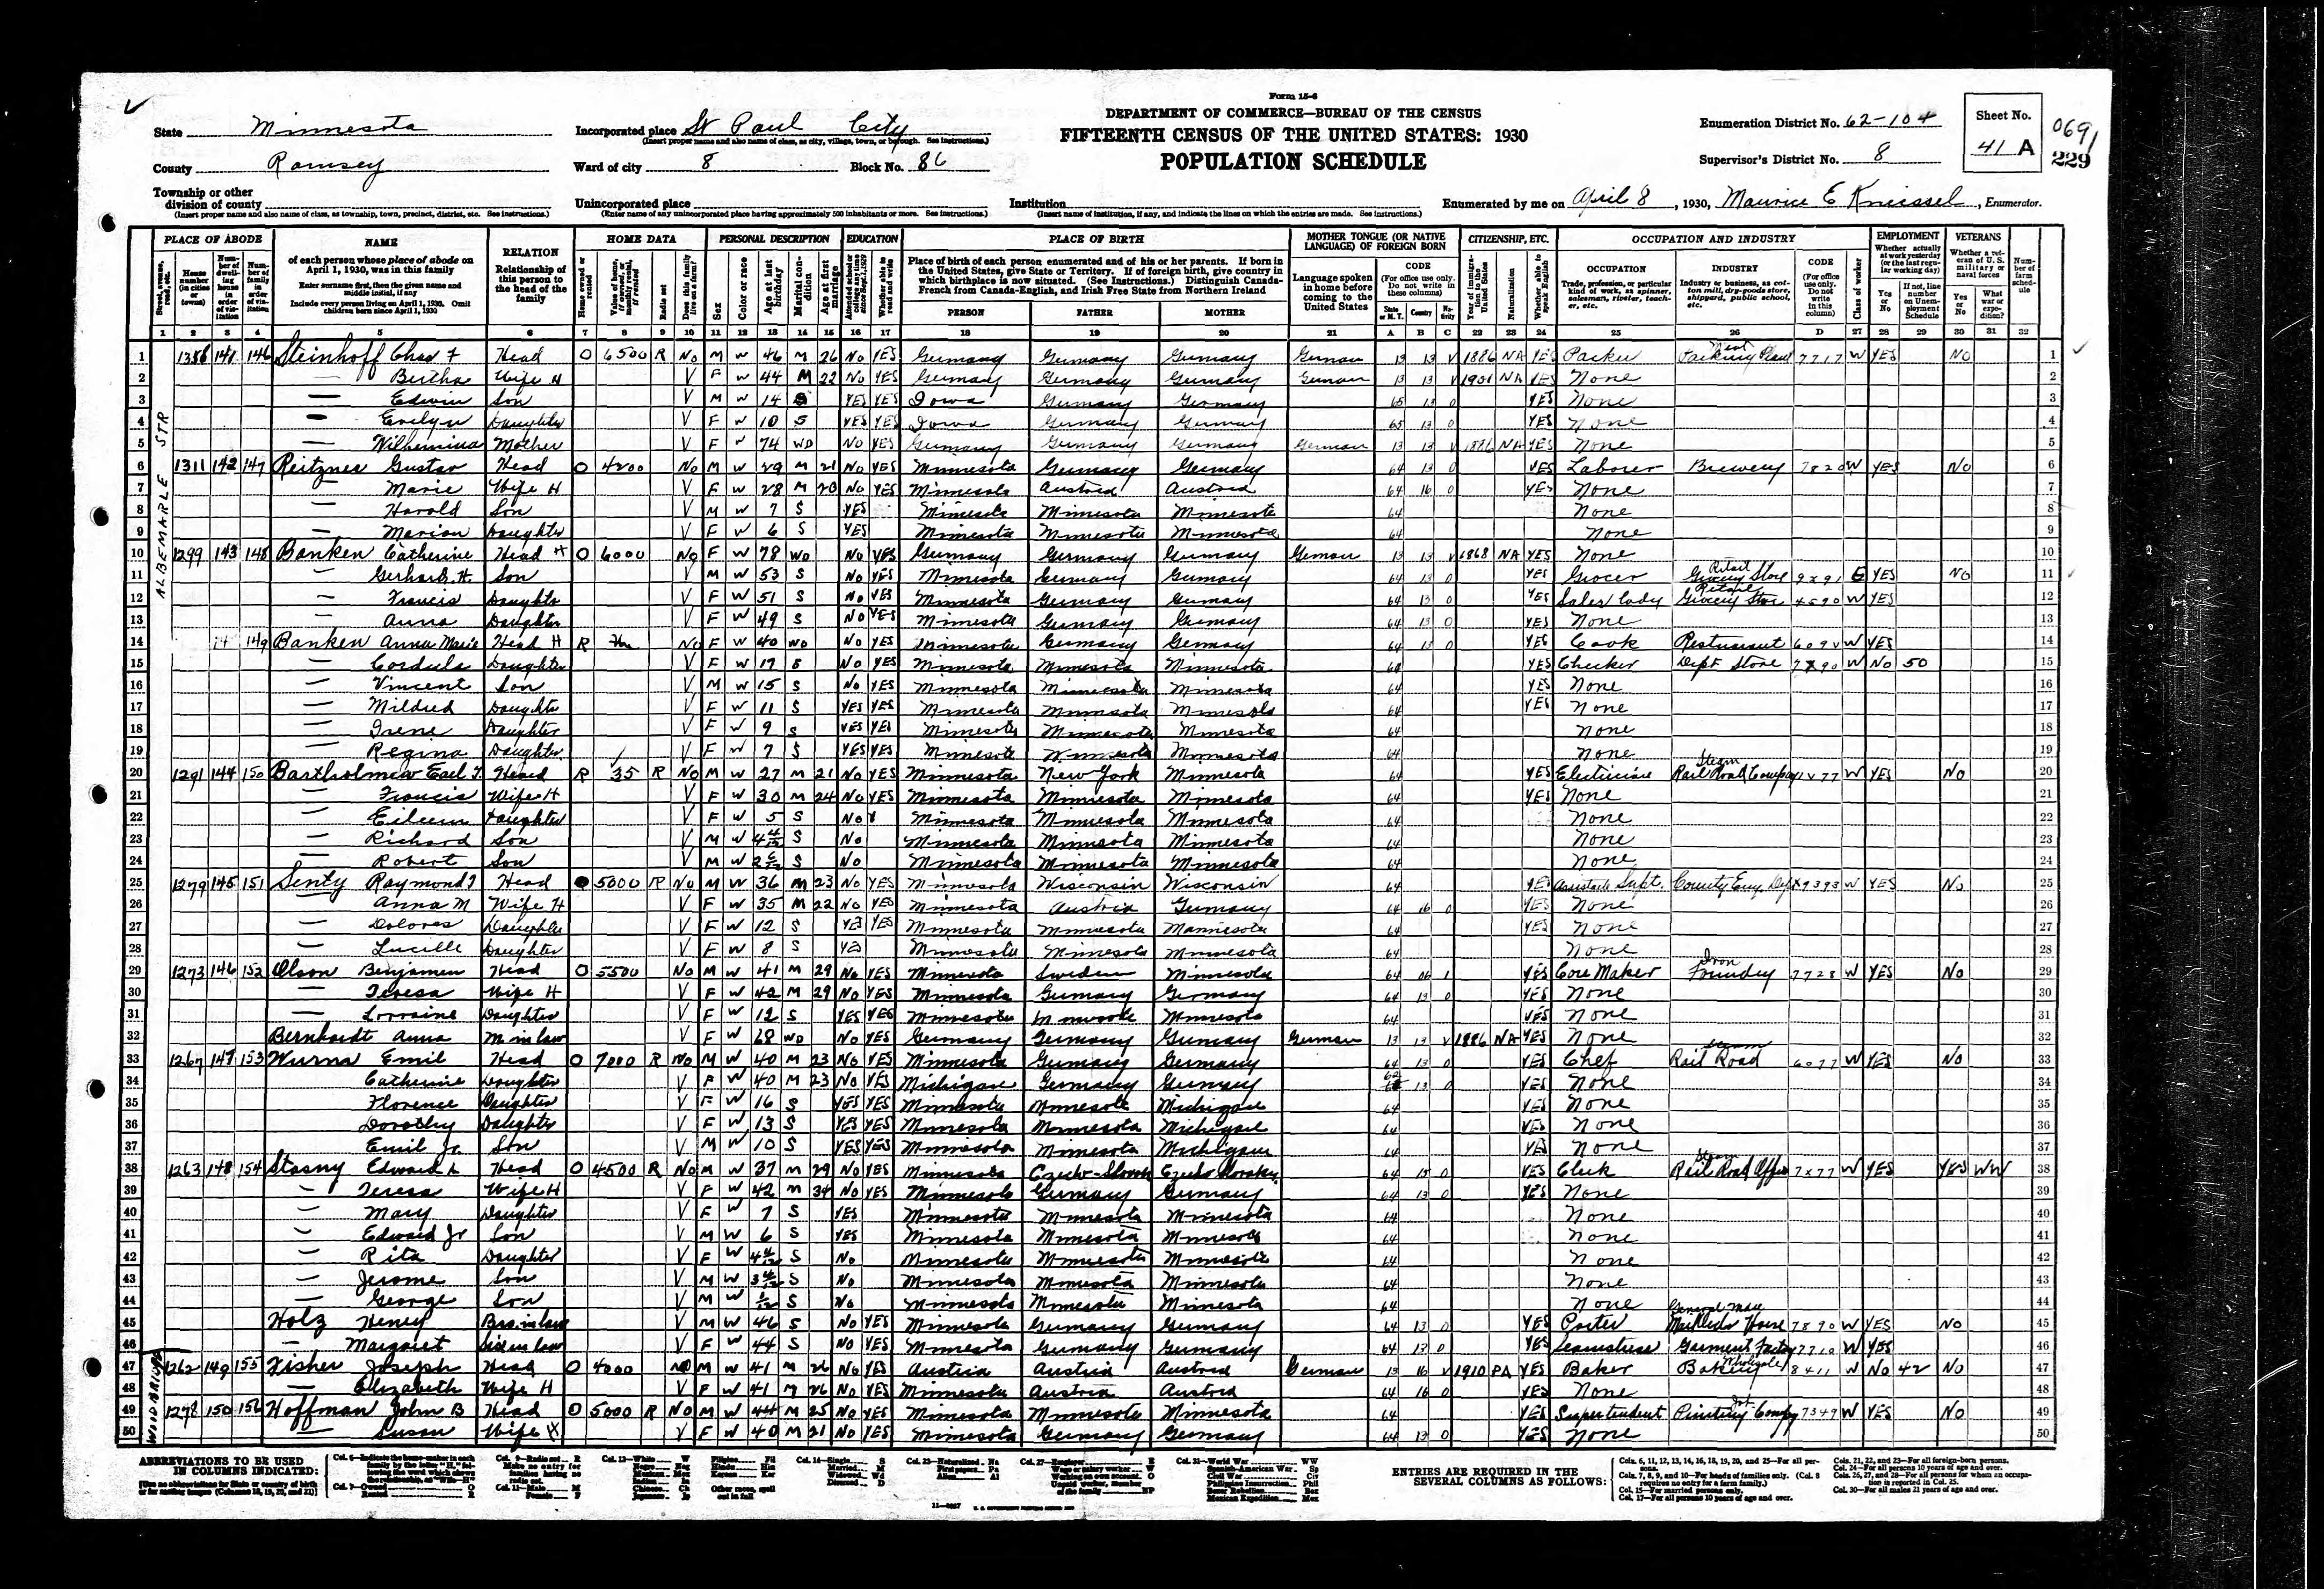 Form 15-6
DEPARTMENT OF COMMERCE—BUREAU OF THE CENSUS
FIFTEENTH CENSUS OF THE UNITED STATES: 1930
POPULATION SCHEDULE
State Minnesota
County Ramsey
Township or other division of county
(Insert proper name and also name of class, as township, town, precinct, district, etc. See instructions.)
Incorporated place St Paul City
(Insert proper name and also name of class, as city, village, town, or borough. See instructions.)
Ward of city 8 Block No. 86
Unincorporated place
(Enter name of any unincorporated place having approximately 500 inhabitants or more. See instructions.)
Institution
(Insert name of institution, if any, and indicate the lines on which the entries are made. See instructions.)
Enumeration District No. 62-104
Supervisor's District No. 8
Sheet No. 41 A
0691
229
Enumerated by me on April 8, 1930, Maurice E , Enumerator.
PLACE OF ABODE NAME RELATION HOME DATA PERSONAL DESCRIPTION EDUCATION PLACE OF BIRTH MOTHER TONGUE (OR NATIVE LANGUAGE) OF FOREIGN BORN CITIZENSHIP, ETC. OCCUPATION AND INDUSTRY EMPLOYMENT VETERANS
ALBEMARLE STR
1 1386 141 146 Steinhoff Chas F Head O 6500 R No M W 46 M 26 No YES Germany Germany Germany German 13 13 V 1886 NA YES Packer Packing Plant 7717 W YES No 1
2 — Bertha Wife H V F W 44 M 22 No YES Germany Germany Germany German 13 13 V 1901 NA YES None 2
3 — Edwin Son V M W 14 S YES YES Iowa Germany Germany 65 13 0 YES None 3
4 — Evelyn Daughter V F W 10 S YES YES Iowa Germany Germany 65 13 0 YES None 4
5 — Wilhemina Mother V F W 74 WD No YES Germany Germany Germany German 13 13 V 1886 NA YES None 5
6 1311 142 147 Reitzner Gustav Head O 4200 No M W 29 M 21 No YES Minnesota Germany Germany 64 13 0 YES Laborer Brewery 7820 W YES No 6
7 — Marie Wife H V F W 28 M 20 No YES Minnesota Austria Austria 64 16 0 YES None 7
8 — Harold Son V M W 7 S YES Minnesota Minnesota Minnesota 64 None 8
9 — Marion Daughter V F W 6 S YES Minnesota Minnesota Minnesota 64 None 9
10 1299 143 148 Banken Catherine Head H O 6000 No F W 78 WD No YES Germany Germany Germany German 13 13 V 1868 NA YES None 10
11 — Gerhard H. Son V M W 53 S No YES Minnesota Germany Germany 64 13 0 YES Grocer Retail Grocery Store 9x91 E YES No 11
12 — Francis Daughter V F W 51 S No YES Minnesota Germany Germany 64 13 0 YES Sales lady Retail Grocery Store 4590 W YES 12
13 — Anna Daughter V F W 49 S No YES Minnesota Germany Germany 64 13 0 YES None 13
14 149 Banken Anna Marie Head H R No F W 40 WD No YES Minnesota Germany Germany 64 13 0 YES Cook Resturaunt 609V W YES 14
15 — Cordula Daughter V F W 19 S No YES Minnesota Minnesota Minnesota YES Checker Dept Store 7x90 W No 50 15
16 — Vincent Son V M W 15 S No YES Minnesota Minnesota Minnesota 64 YES None 16
17 — Mildred Daughter V F W 11 S YES YES Minnesota Minnesota Minnesota 64 YES None 17
18 — Irene Daughter V F W 9 S YES YES Minnesota Minnesota Minnesota 64 None 18
19 — Regina Daughter V F W 7 S YES YES Minnesota Minnesota Minnesota 64 None 19
20 1291 144 150 Bartholmew Earl J. Head R 35 R No M W 27 M 21 No YES Minnesota New York Minnesota 64 YES Electician Steam Rail Road Company 1V77 W YES No 20
21 — Francis Wife H V F W 30 M 24 No YES Minnesota Minnesota Minnesota 64 YES None 21
22 — Eileen Daughter V F W 5 S No Minnesota Minnesota Minnesota 64 None 22
23 — Richard Son V M W 4 4/12 S No Minnesota Minnesota Minnesota 64 None 23
24 — Robert Son V M W 2 S No Minnesota Minnesota Minnesota 64 None 24
25 1279 145 151 Senty Raymond J Head O 5000 R No M W 36 M 23 No YES Minnesota Wisconsin Wisconsin 64 YES Assistant Supt. County Eng. Dept 9393 W YES No 25
26 — Anna M Wife H V F W 35 M 22 No YES Minnesota Austria Germany 64 16 0 YES None 26
27 — Dolores Daughter V F W 12 S YES YES Minnesota Minnesota Mannesota 64 YES None 27
28 — Lucille Daughter V F W 8 S YES Minnesota Minnesota Minnesota 64 None 28
29 1273 146 152 Olson Benjamin Head O 5500 No M W 41 M 29 No YES Minnesota Sweden Minnesota 64 06 1 YES Core Maker Iron Foundry 7728 W YES No 29
30 — Teresa Wife H V F W 42 M 29 No YES Minnesota Germany Germany 64 13 0 YES None 30
31 — Lorraine Daughter V F W 12 S YES YES Minnesota Minnesota Minnesota 64 YES None 31
32 Bernhardt Anna M in law V F W 68 WD No YES Germany Germany Germany German 13 13 V 1886 NA YES None 32
33 1267 147 153 Wurna Emil Head O 7000 R No M W 40 M 23 No YES Minnesota Germany Germany 64 13 0 YES Chef Steam Rail Road 6077 W YES No 33
34 Catherine Daughter V F W 40 M 23 No YES Michigan Germany Germany 62 13 0 YES None 34
35 Florence Daughter V F W 16 S YES YES Minnesota Minnesota Michigan 64 YES None 35
36 Dorothy Daughter V F W 13 S YES YES Minnesota Minnesota Michigan 64 YES None 36
37 Emil Jr. Son V M W 10 S YES YES Minnesota Minnesota Michigan 64 YES None 37
38 1263 148 154 Stasny Edward A Head O 4500 R No M W 37 M 29 No YES Minnesota Czecho-Slovak Czecho Slovakia 64 15 0 YES Clerk Steam Rail Road Office 7x77 W YES YES WW 38
39 — Teresa Wife H V F W 42 M 34 No YES Minnesota Germany Germany 64 13 0 YES None 39
40 — Mary Daughter V F W 7 S YES Minnesota Minnesota Minnesota 64 None 40
41 — Edward Jr Son V M W 6 S YES Minnesota Minnesota Minnesota 64 None 41
42 — Rita Daughter V F W 4 4/12 S No Minnesota Minnesota Minnesota 64 None 42
43 — Jerome Son V M W 3 S No Minnesota Minnesota Minnesota 64 None 43
44 — George Son V M W S No Minnesota Minnesota Minnesota 64 None 44
45 Holz Henry Bro. in law V M W 46 S No YES Minnesota Germany Germany 64 13 0 YES Porter General House 7890 W YES No 45
46 — Margaret Sis in law V F W 44 S No YES Minnesota Germany Germany 64 13 0 YES Seamstress Garment Factory 7710 W YES 46
47 1262 149 155 Fisher Joseph Head O 4000 No M W 41 M 26 No YES Austria Austria Austria German 13 16 V 1910 PA YES Baker Wholesale Bakery 8411 W No 42 No 47
48 — Elizabeth Wife H V F W 41 M 26 No YES Minnesota Austria Austria 64 16 0 YES None 48
49 1278 150 156 Hoffman John B Head O 5000 R No M W 44 M 25 No YES Minnesota Minnesota Minnesota 64 YES Supertendent Job Printing Company 7349 W YES No 49
50 — Susan Wife H V F W 40 M 21 No YES Minnesota Germany Germany 64 13 0 YES None 50
ABBREVIATIONS TO BE USED IN COLUMNS INDICATED:
ENTRIES ARE REQUIRED IN THE SEVERAL COLUMNS AS FOLLOWS: